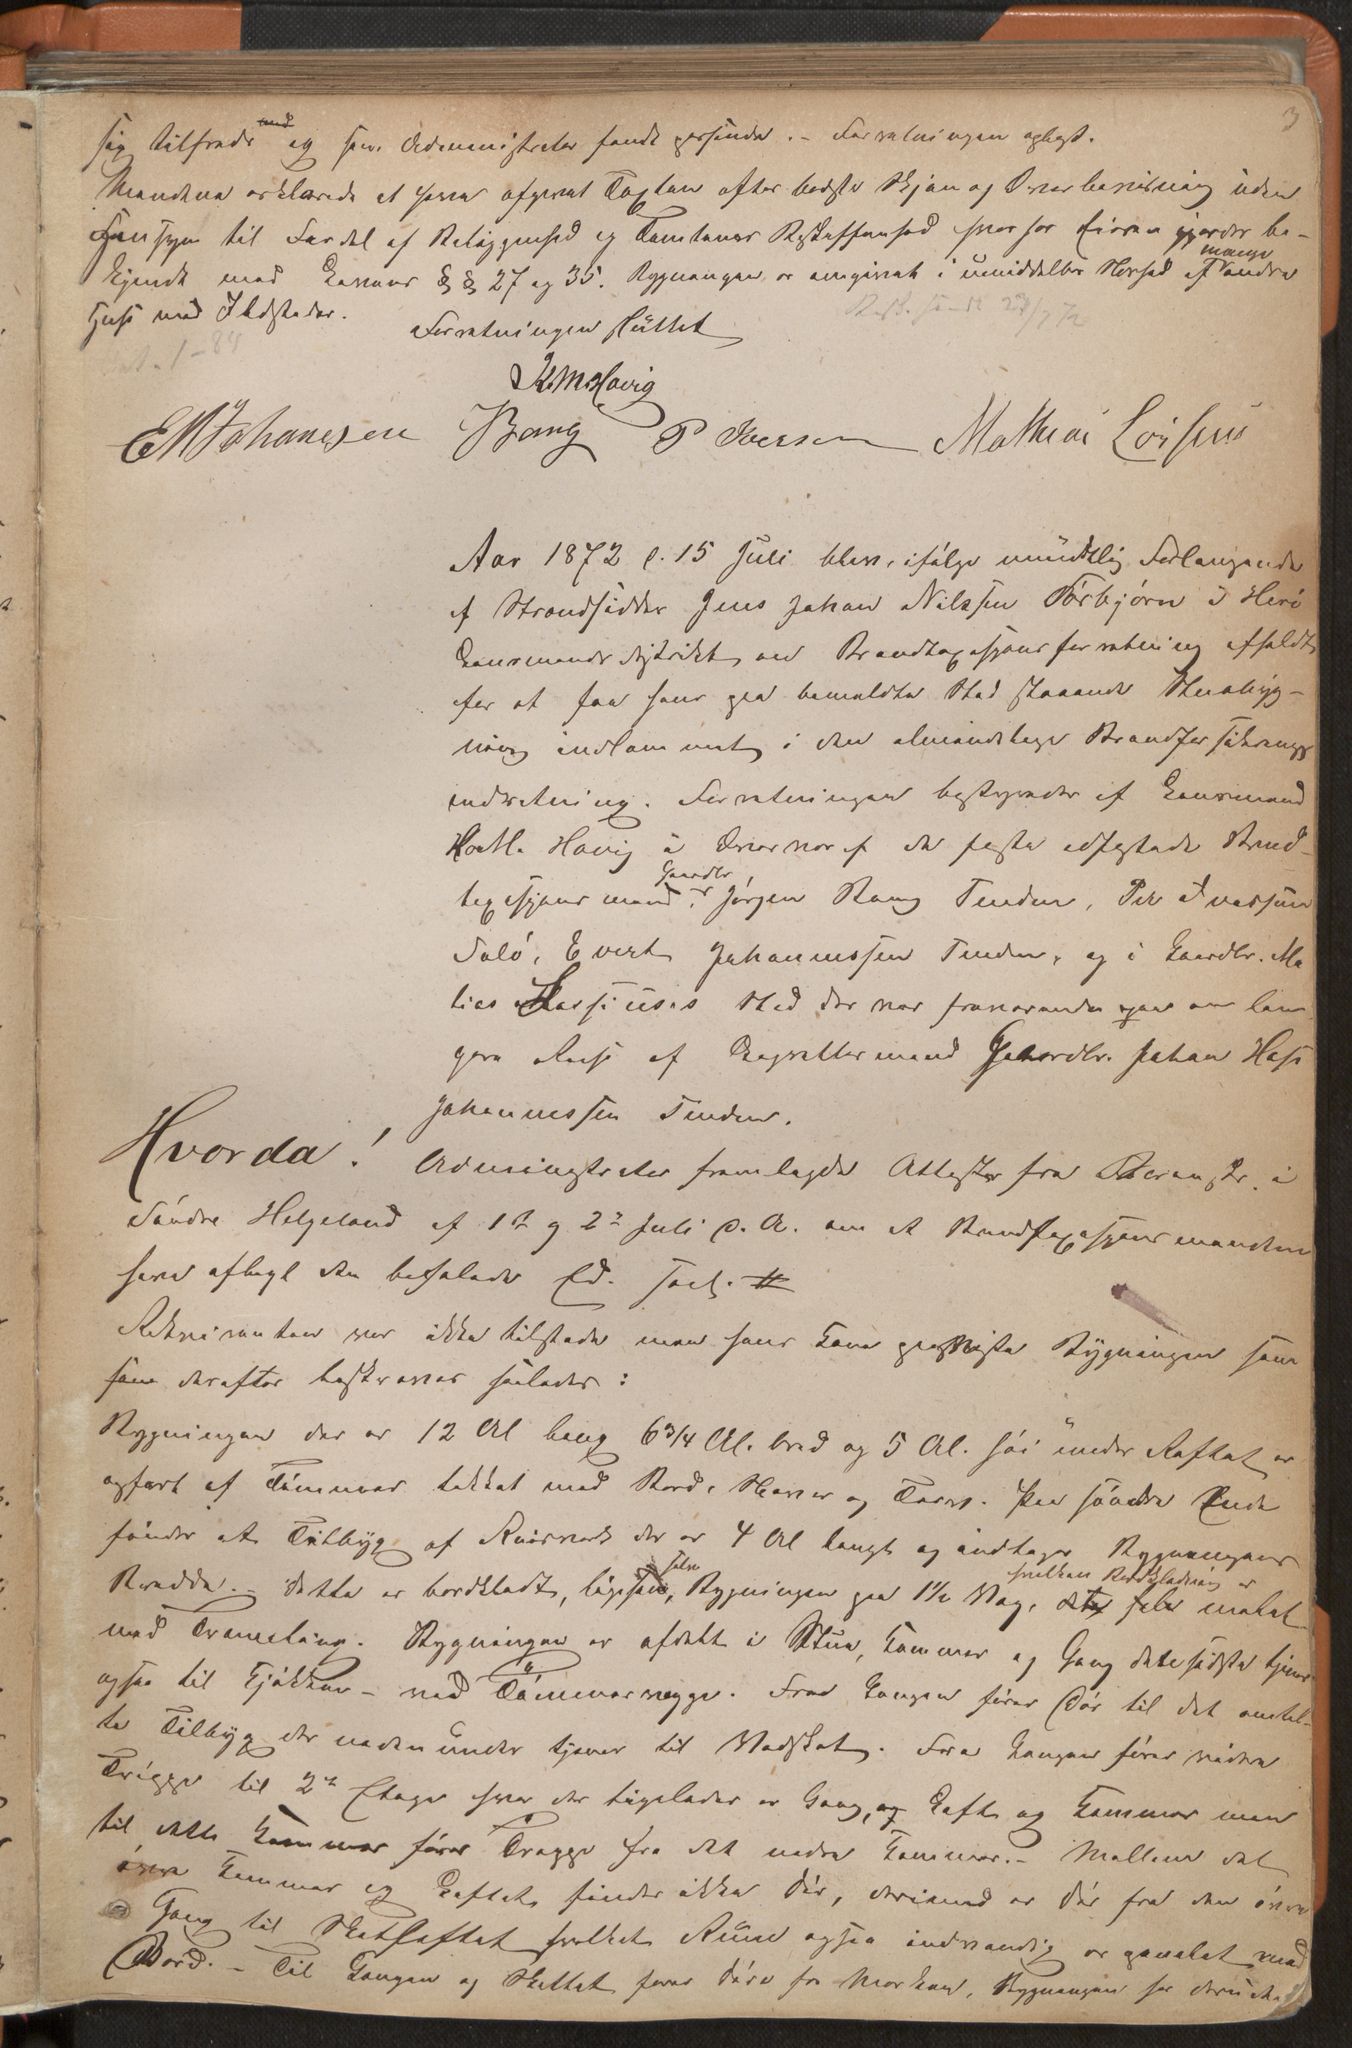 3
sig tilfreds og som Administrator fandt gyldende. - Forretningen oplæst.
Mændene erklærede at have afgivet Taxten efter bedste Skjøn og Overbevisning uden
Hensyn til Fordel af Beliggenhed og Tomtens Beskaffenhed hvorfor Eieren gjordes be-
kjendt med Lovens §§ 27 og 35. Bygningen er omgivet i umiddelbar Nærhed af mange andre
Huse med Ildsteder.
Forretningen sluttet
Havig
E M Johanesen Bang P Iversen Mathias
Aar 1872 d. 15 Juli blev, ifølge mundtlig Forlangende
af Strandsidder Jens Johan Nilssen Torbjørn i Herø
Lensmandsdistrikt en Brandtaxtsjonsforretning afholdt
for at faa hans paa bemeldte Sted staaende Stuebyg-
ning indlemmet i den almindelige Brandforsikrings
indretning. Forretningen bestyredes af Lensmand
Havig i Overvær af de faste edfæstede Brand-
taxtsjonsmænd: Gaardbr. Jørgen Bang Tenden, Per Iverssen
Salø, Evert Johannessen Tenden, og i Gaardbr. Ma
tias Sted der var fraværende paa en læn
gere Reise af Lagrettesmand Gaardbr. Johan Hass
Johannessen Tenden.
Hvorda!
Administrator fremlagde Attester fra Sorenskr. i
Søndre Helgeland af 1ste og 2den Juli d. A. om at Brandtaxtsjonsmændene
have aflagt den befalede Ed.
Rekvirenten var ikke tilstede men hans Kone paaviste Bygningen som
som derefter beskreves saaledes:
Bygningen der er 12 Al lang 6 3/4 Al. bred og 5 Al. høi under Raftet er
opført af Tømmer tækket med Bord, Næver og Torv. Paa søndre Ende
findes et Tilbyg af Reisverk der er 4 Al langt og indtager Bygningens
Bredde. - Dette er bordklædt, ligesom selve Bygningen paa 1 1/2 Væg, hvilken Bordklædning er malet
med Tranmaling. Bygningen er afdelt i Stue, Kammer og Gang dette sidste tjener
ogsaa til Kjøkken - med Tømmervægge. Fra Gangen fører Dør til det omtal-
te Tilbyg der nedenunder tjener til Vedskot. Fra Gangen fører videre
Trappe til 2den Etage hvor der ligeledes er Gang, Loft og Kammer men
til dette Kammer fører Trappe fra det nedre Kammer. - Mellem det
øvre Kammer og Loftet findes ikke Dør, derimod er Dør fra den øvre
Gang til Skotloftet hvilket Rum ogsaa indvendig er panelet med
Bord. - Til Gangen og Skottet fører Døre fra Marken, Bygningen har desuden